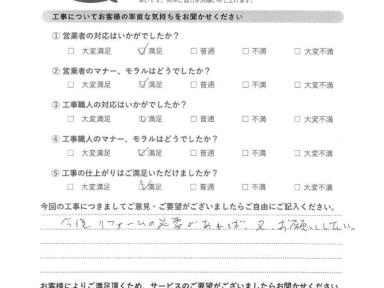 工事についてお客様の率直な気持ちをお聞かせください
① 営業者の対応はいかがでしたか?
□ 大変満足 ☑ 満足 □ 普通 □ 不満 □ 大変不満
② 営業者のマナー、モラルはどうでしたか?
□ 大変満足 ☑ 満足 □ 普通 □ 不満 □ 大変不満
③ 工事職人の対応はいかがでしたか?
□ 大変満足 ☑ 満足 □ 普通 □ 不満 □ 大変不満
④ 工事職人のマナー、モラルはどうでしたか?
□ 大変満足 ☑ 満足 □ 普通 □ 不満 □ 大変不満
⑤ 工事の仕上がりはご満足いただけましたか?
□ 大変満足 ☑ 満足 □ 普通 □ 不満 □ 大変不満
今回の工事につきましてご意見・ご要望がございましたらご自由にご記入ください。
今後リフォームの必要があれば、又お願いしたい。
お客様によりご満足頂くため、サービスのご要望がございましたらお聞かせください